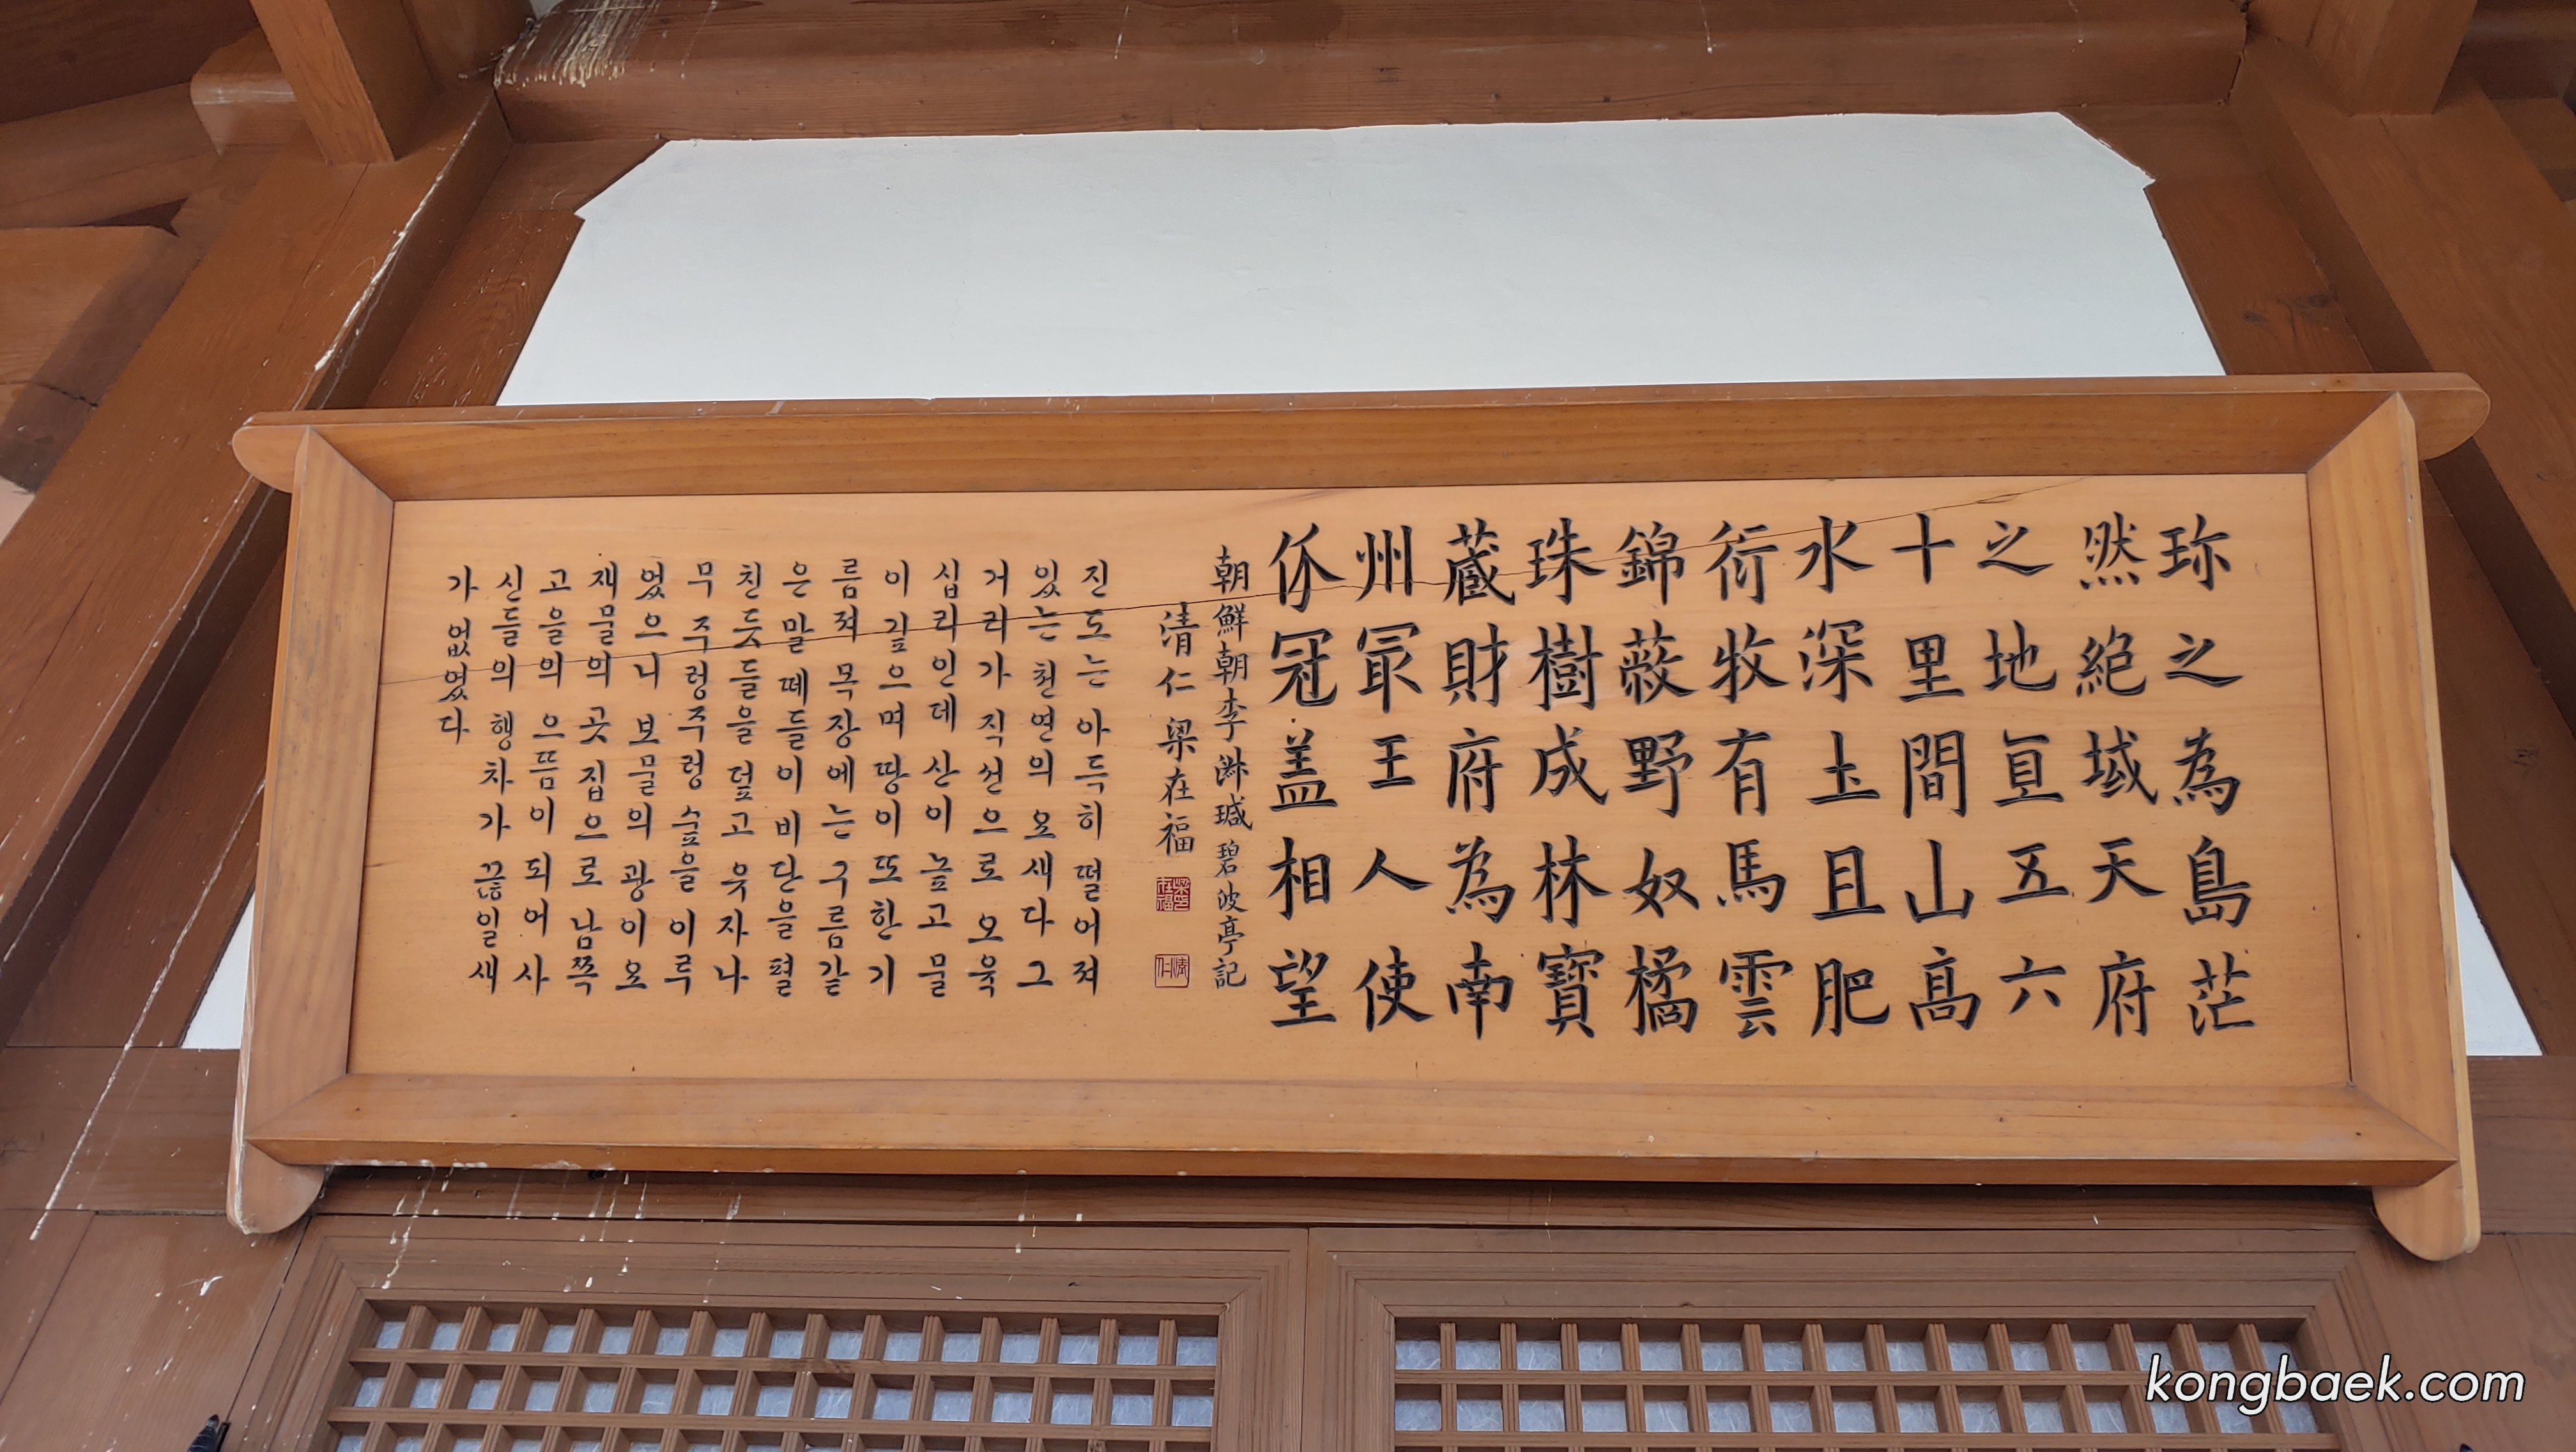 珎之為島茫
然絶域天府
之地亘五六
十里間山高
水深土且肥
衍牧有馬雲
錦蔽野奴橘
珠樹成林寶
蔵財府為南
州冣王人使
休冠盖相望
朝鮮朝李淋瑊碧波亭記
清仁 梁在福
진도는 아득히 떨어져
있는 천연의 요새다 그
거리가 직선으로 오육
십리인데 산이 높고 물
이 깊으며 땅이 또한 기
름져 목장에는 구름같
은 말 떼들이 비단을 펼
친듯 들을 덮고 유자나
무 주렁주렁 숲을 이루
었으니 보물의 광이요
재물의 곳집으로 남쪽
고을의 으뜸이 되어 사
신들의 행차가 끊일새
가 없었다
kongbaek.com